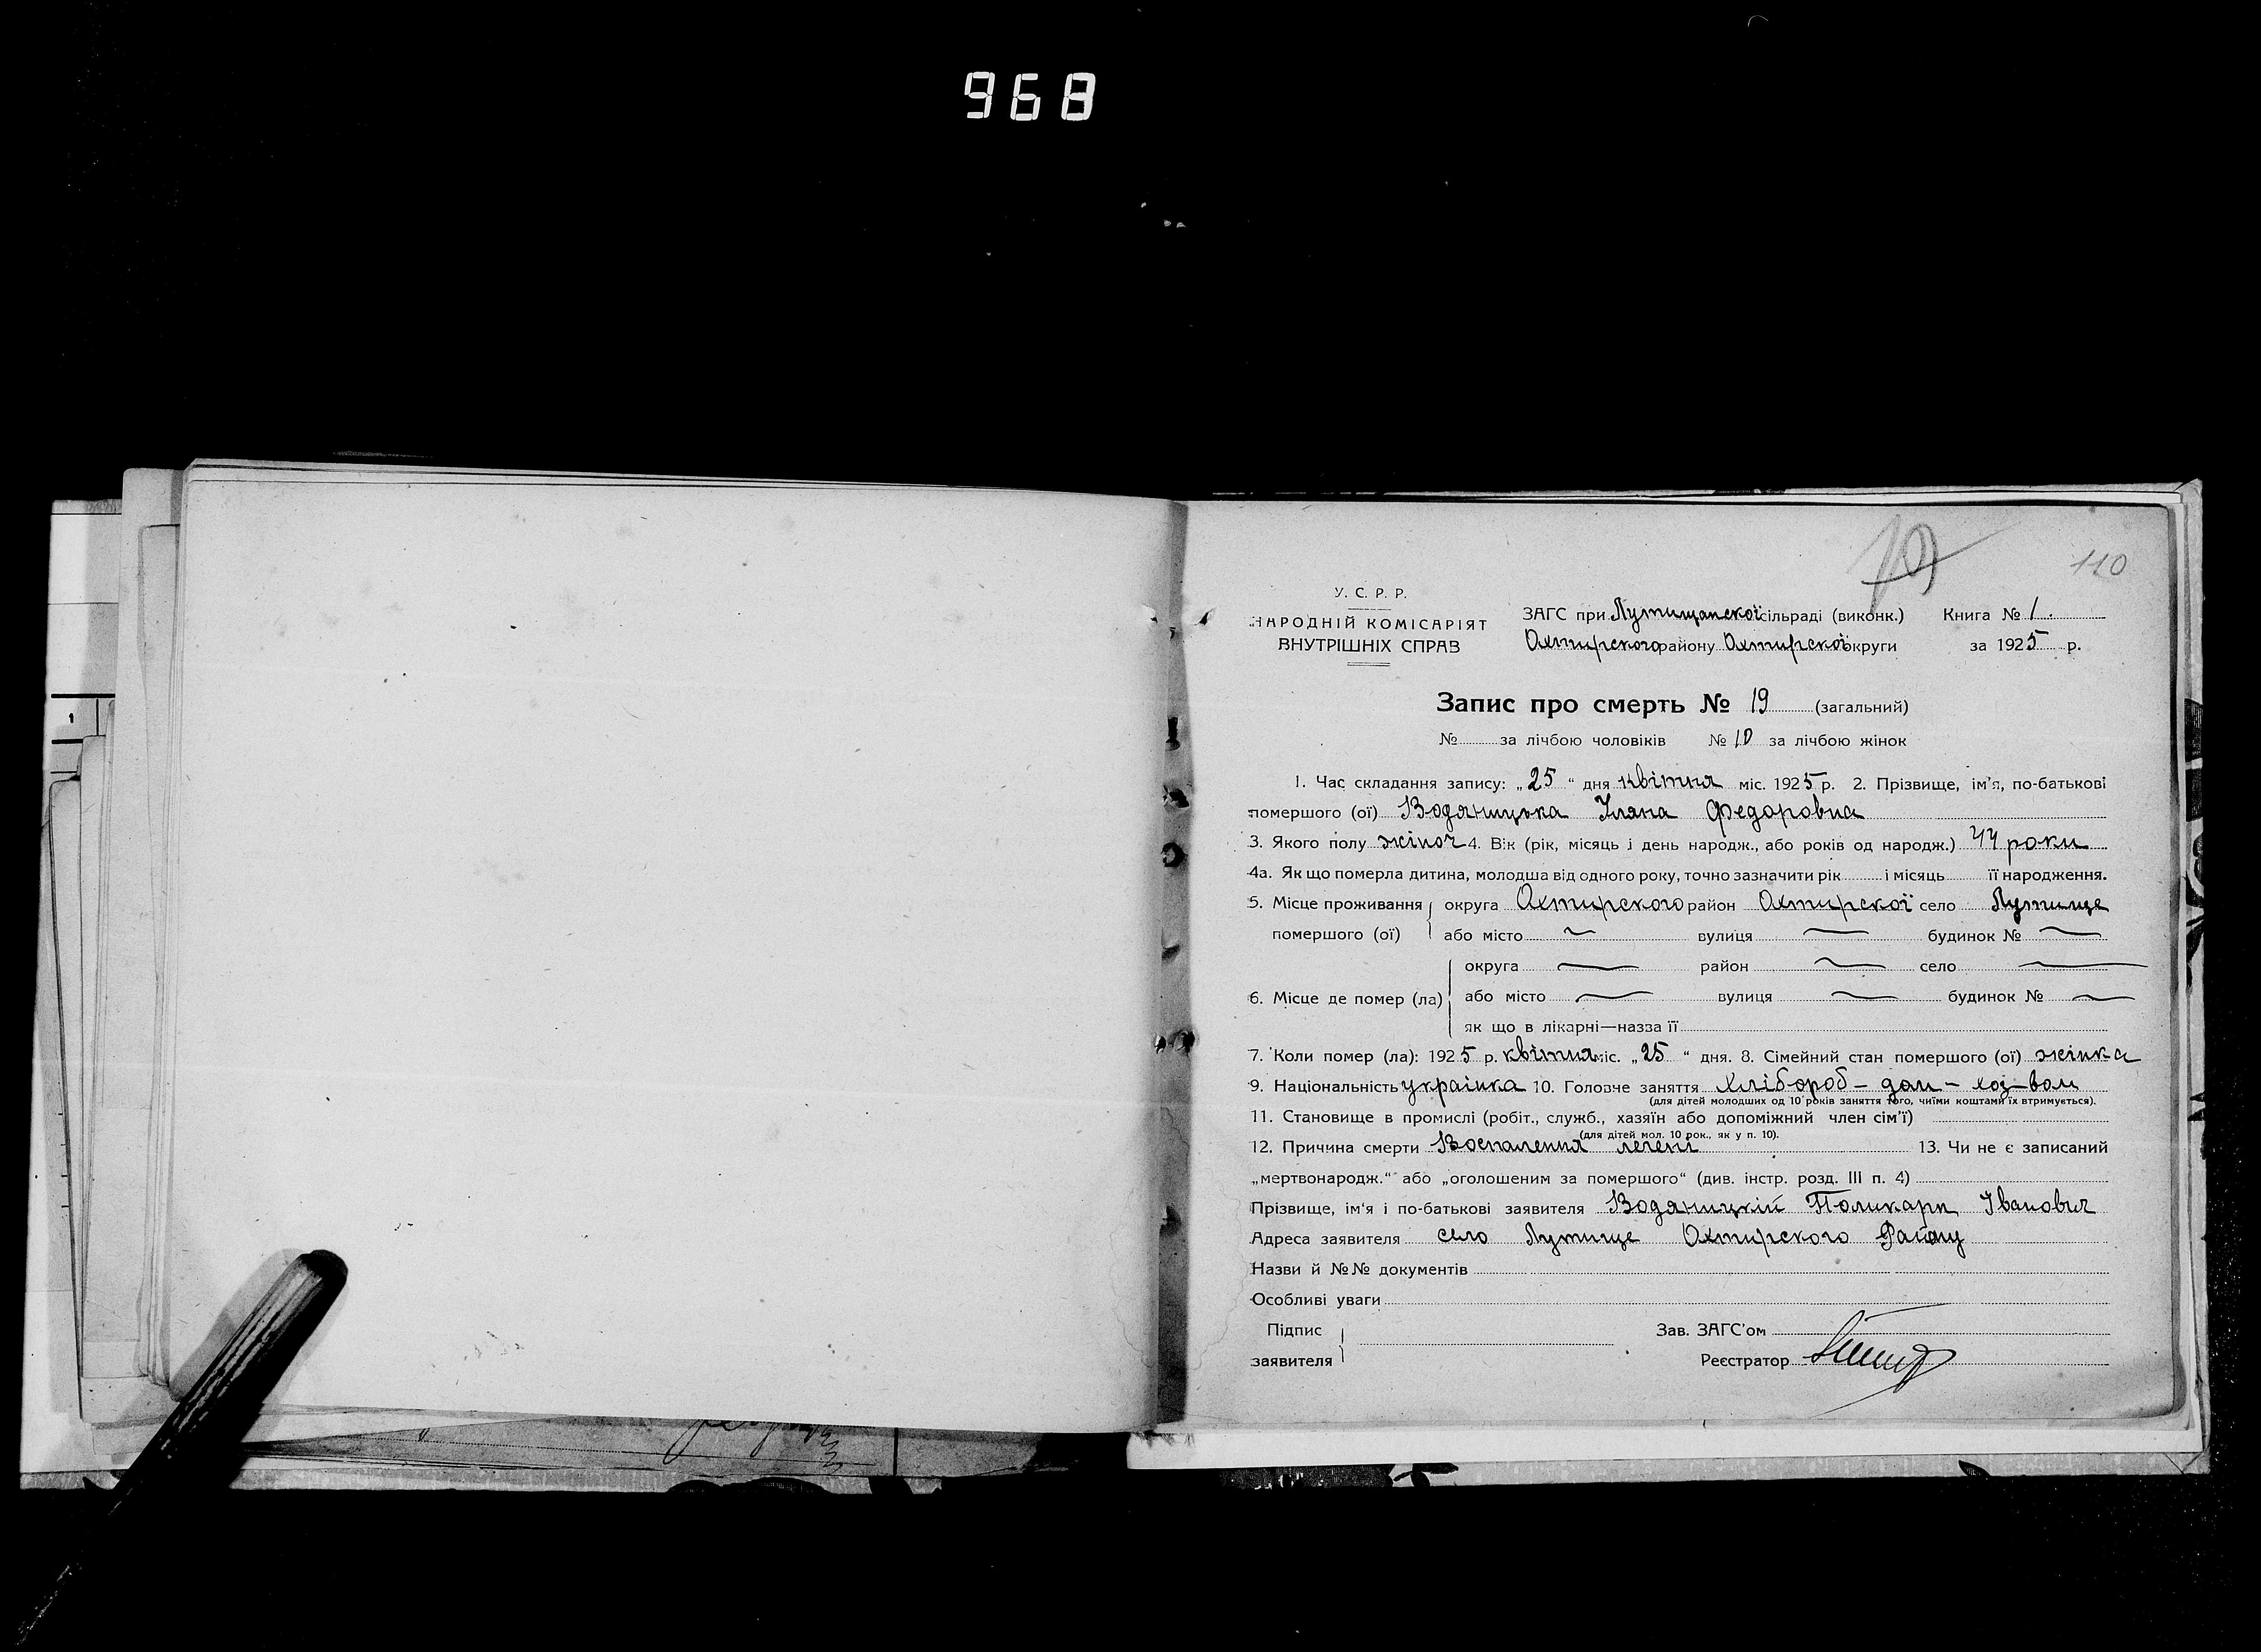 968
110
У. С. Р. Р.
НАРОДНІЙ КОМІСАРІЯТ
ВНУТРІШНІХ СПРАВ
ЗАГС при Лутищанскої сільраді (виконк.) Книга № 1.
Охтирского району Охтирскої округи за 1925 р.
Запис про смерть № 19 (загальний)
№ за лічбою чоловіків № 10 за лічбою жінок
1. Час складання запису: „25“ дня квітня міс. 1925 р. 2. Прізвище, ім'я, по-батькові
помершого (ої) Водяницька Уляна Федоровна
3. Якого полу жіноч 4. Вік (рік, місяць і день народж., або років од народж.) 44 роки
4а. Як що померла дитина, молодша від одного року, точно зазначити рік і місяць її народження.
5. Місце проживання округа Охтирского район Охтирскої село Лутище
помершого (ої) або місто — вулиця — будинок № —
округа — район — село —
6. Місце де помер (ла) або місто — вулиця — будинок № —
як що в лікарні—назва її
7. Коли помер (ла): 1925 р. квітня міс. „25“ дня. 8. Сімейний стан помершого (ої) жінка
9. Національність українка 10. Головче заняття Хлібороб - дом - хоз-вом
(для дітей молодших од 10 років заняття того, чиїми коштами їх втримується).
11. Становище в промислі (робіт., служб., хазяїн або допоміжний член сім'ї)
(для дітей мол. 10 рок., як у п. 10).
12. Причина смерти Воспалення легені 13. Чи не є записаний
„мертвонародж.“ або „оголошеним за помершого“ (див. інстр. розд. III п. 4)
Прізвище, ім'я і по-батькові заявителя Водяницкій Поликарп Іванович
Адреса заявителя село Лутище Охтирского Району
Назви й №№ документів
Особливі уваги
Підпис
заявителя
Зав. ЗАГС'ом
Реєстратор